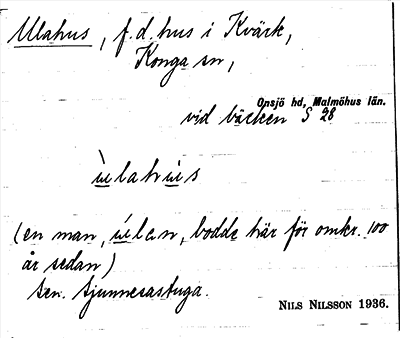 Ulahus, f.d. hus i Kvärk,
Konga sn,
Onsjö hd, Malmöhus län.
vid bäcken S 28
ùlahùs
(en man, úlan, bodde här för omkr. 100
år sedan)
Sen.
NILS NILSSON 1936.